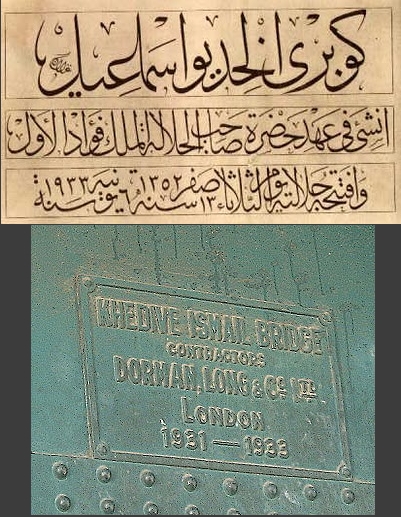 كوبرى الخديو اسماعيل
انشئ فى عهد حضرة صاحب الجلالة الملك فؤاد الأول
وافتتحه جلالته يوم الثلاثاء ١٣ صفر سنة ١٣٥٢ ٦ يونيه سنة ١٩٣٣
KHEDIVE ISMAIL BRIDGE
CONTRACTORS
DORMAN, LONG & Co. LTD
LONDON
1931 — 1933